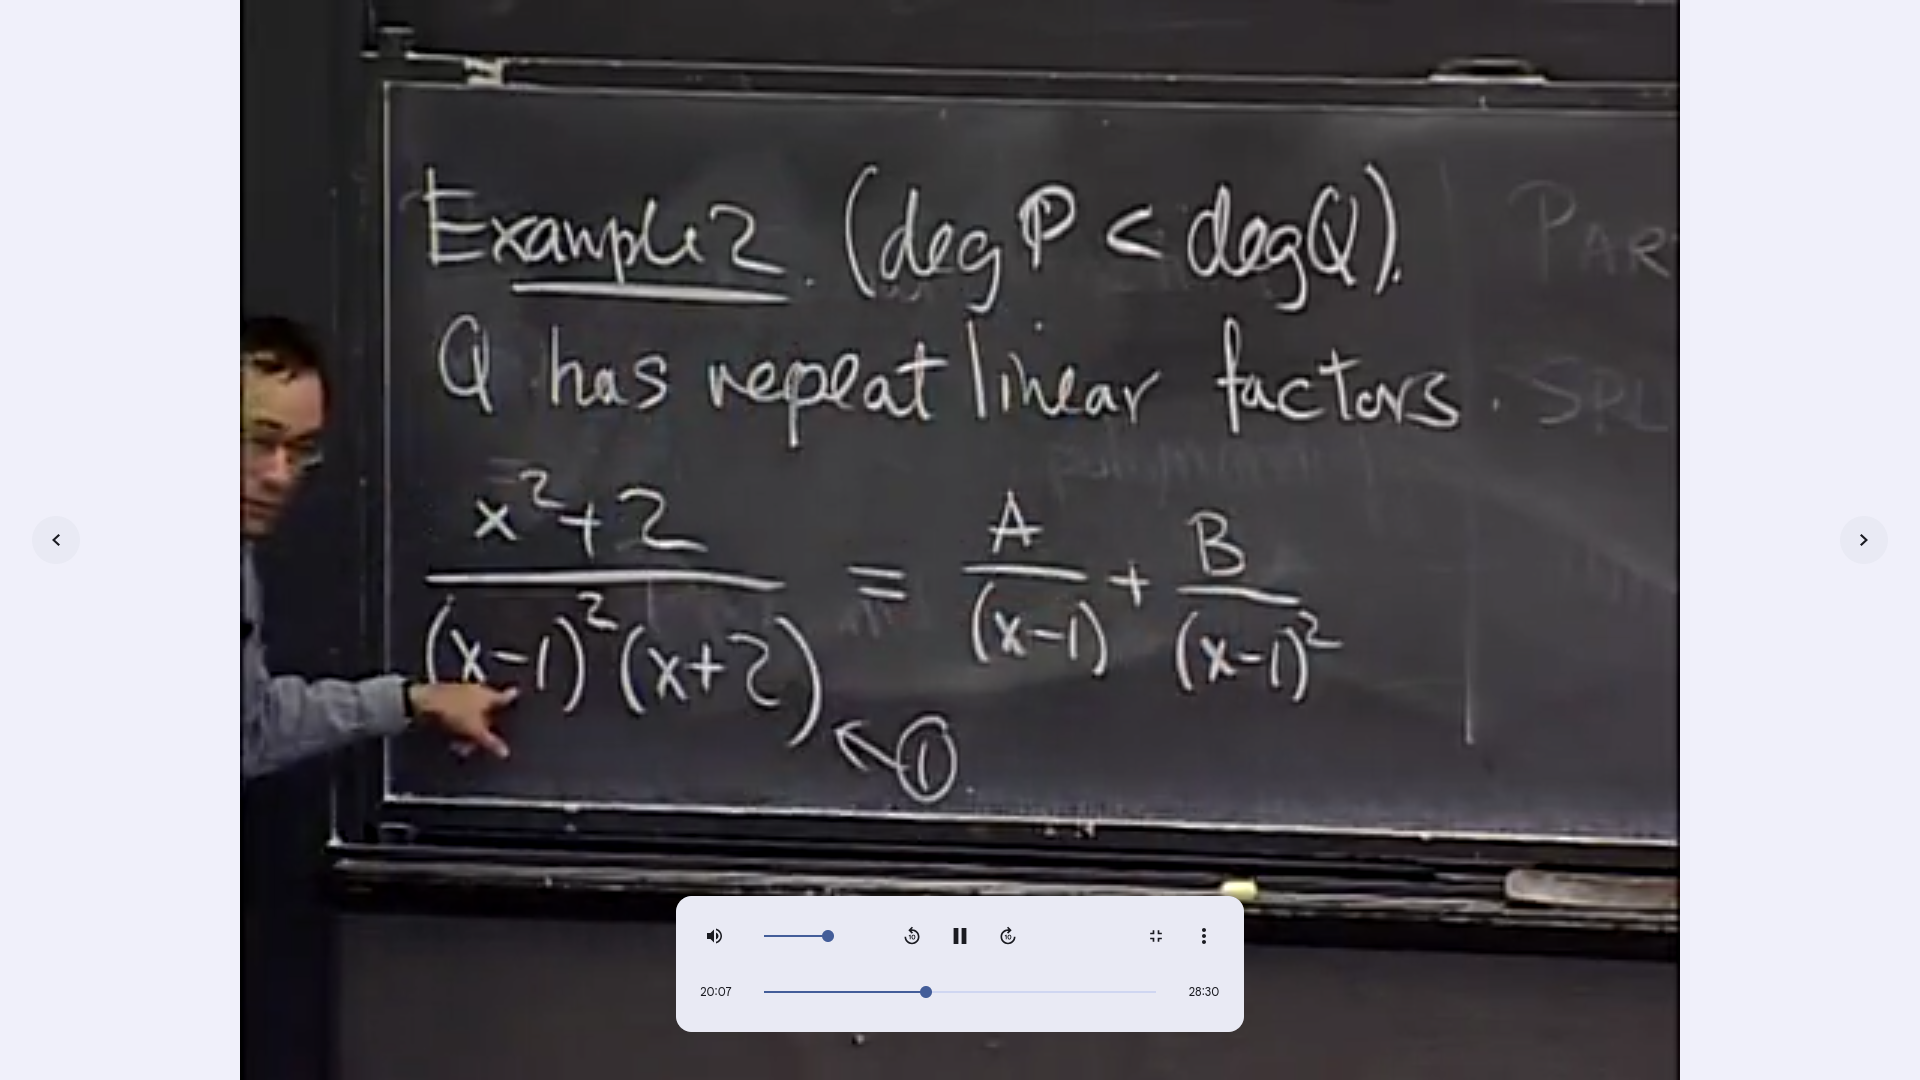 Example 2. (deg P < deg Q).
Q has repeat linear factors.
x²+2 / (x-1)²(x+2) = A/(x-1) + B/(x-1)²
①
PAR
SPL
20:07
28:30